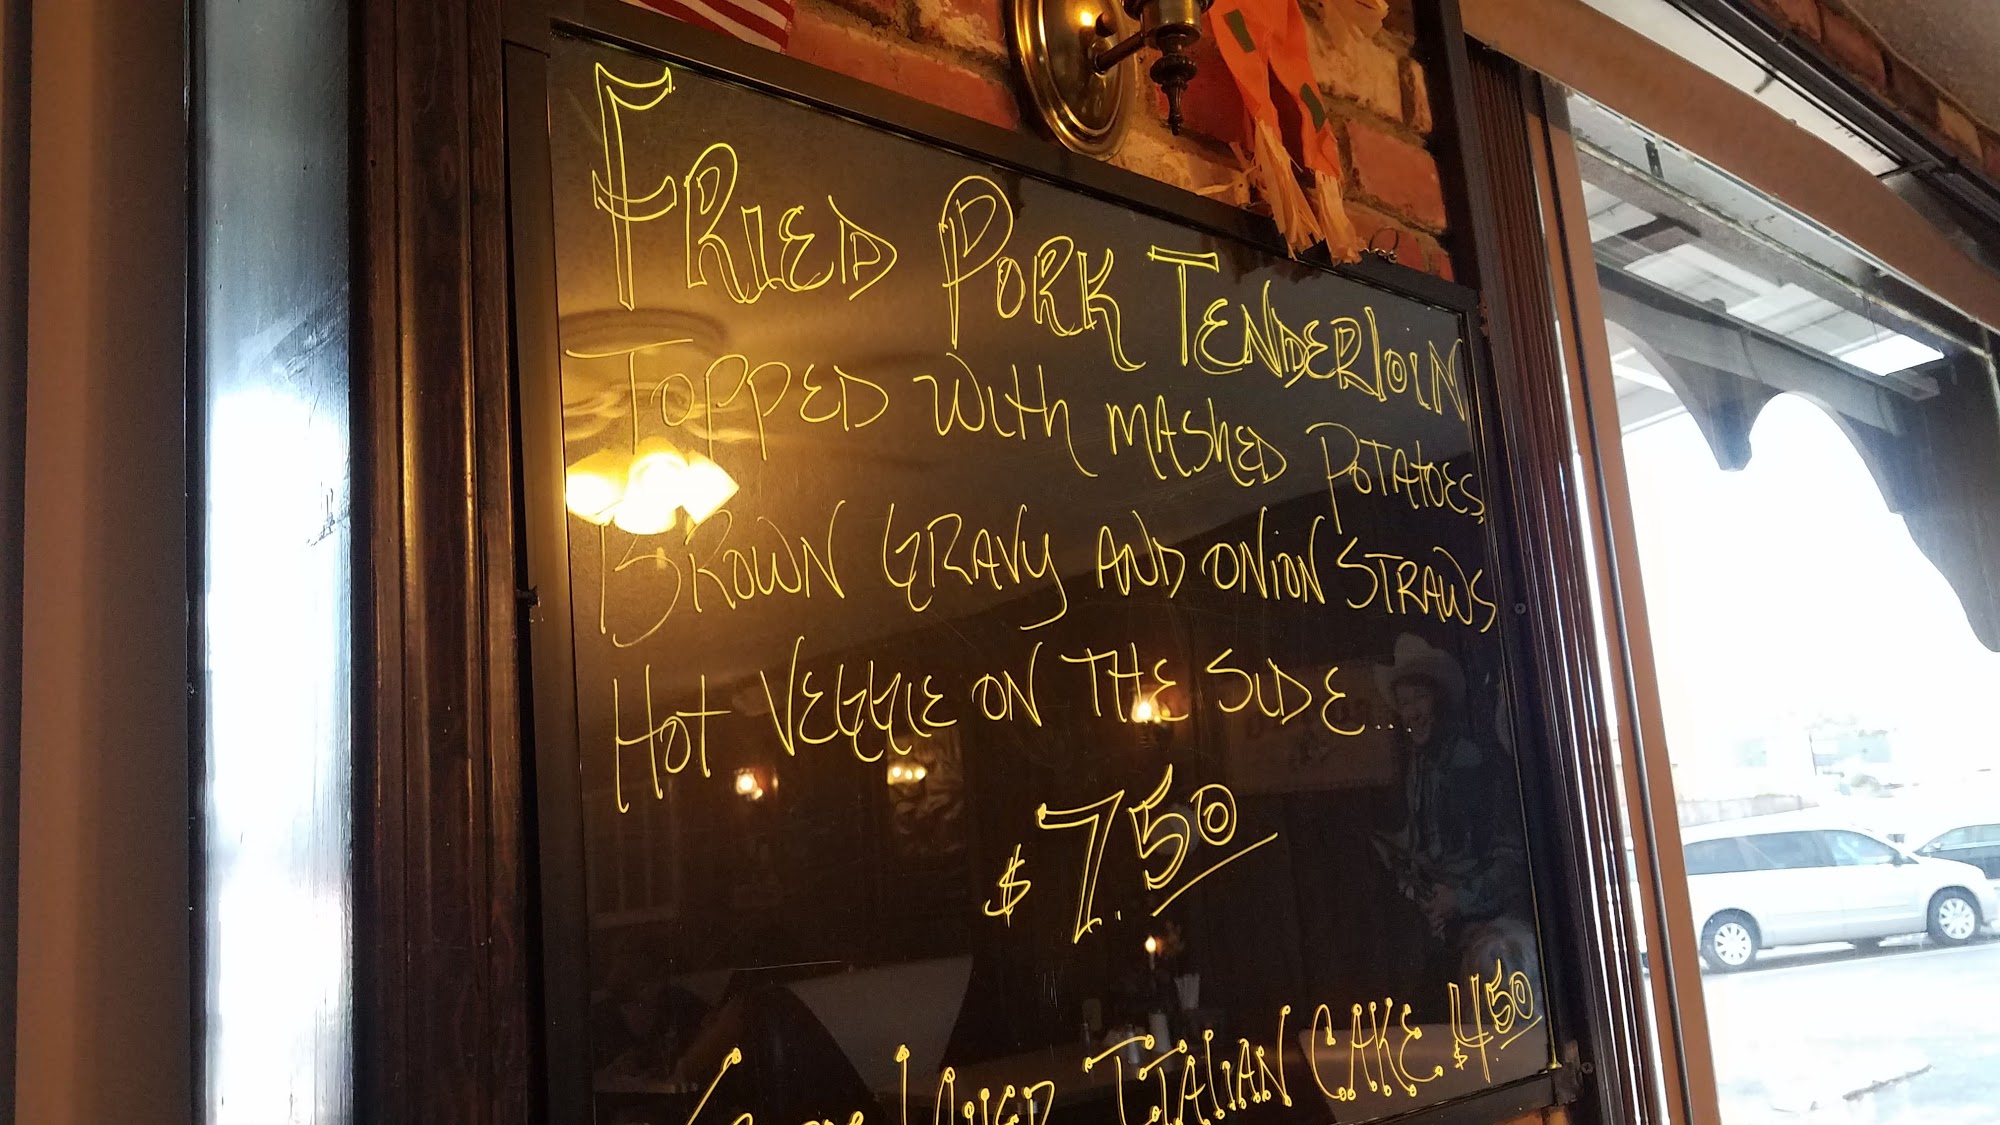 Fried Pork Tenderloin
Topped with mashed potatoes,
Brown gravy and onion straws
Hot veggie on the side...
$7.50
Layer Italian Cake $4.50